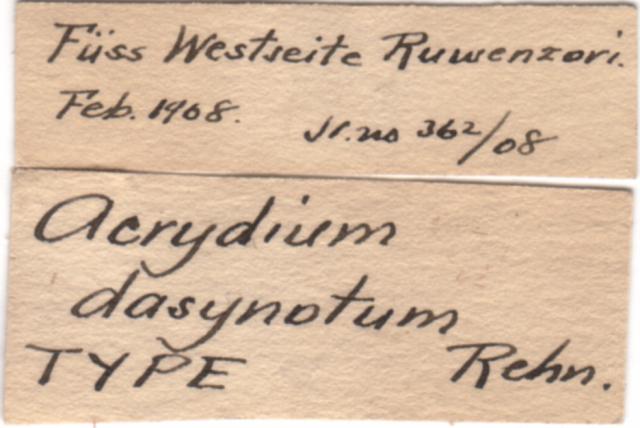 Füss Westseite Ruwenzori.
Feb. 1908. Jl. no 362/08
Acrydium
dasynotum
TYPE Rehn.